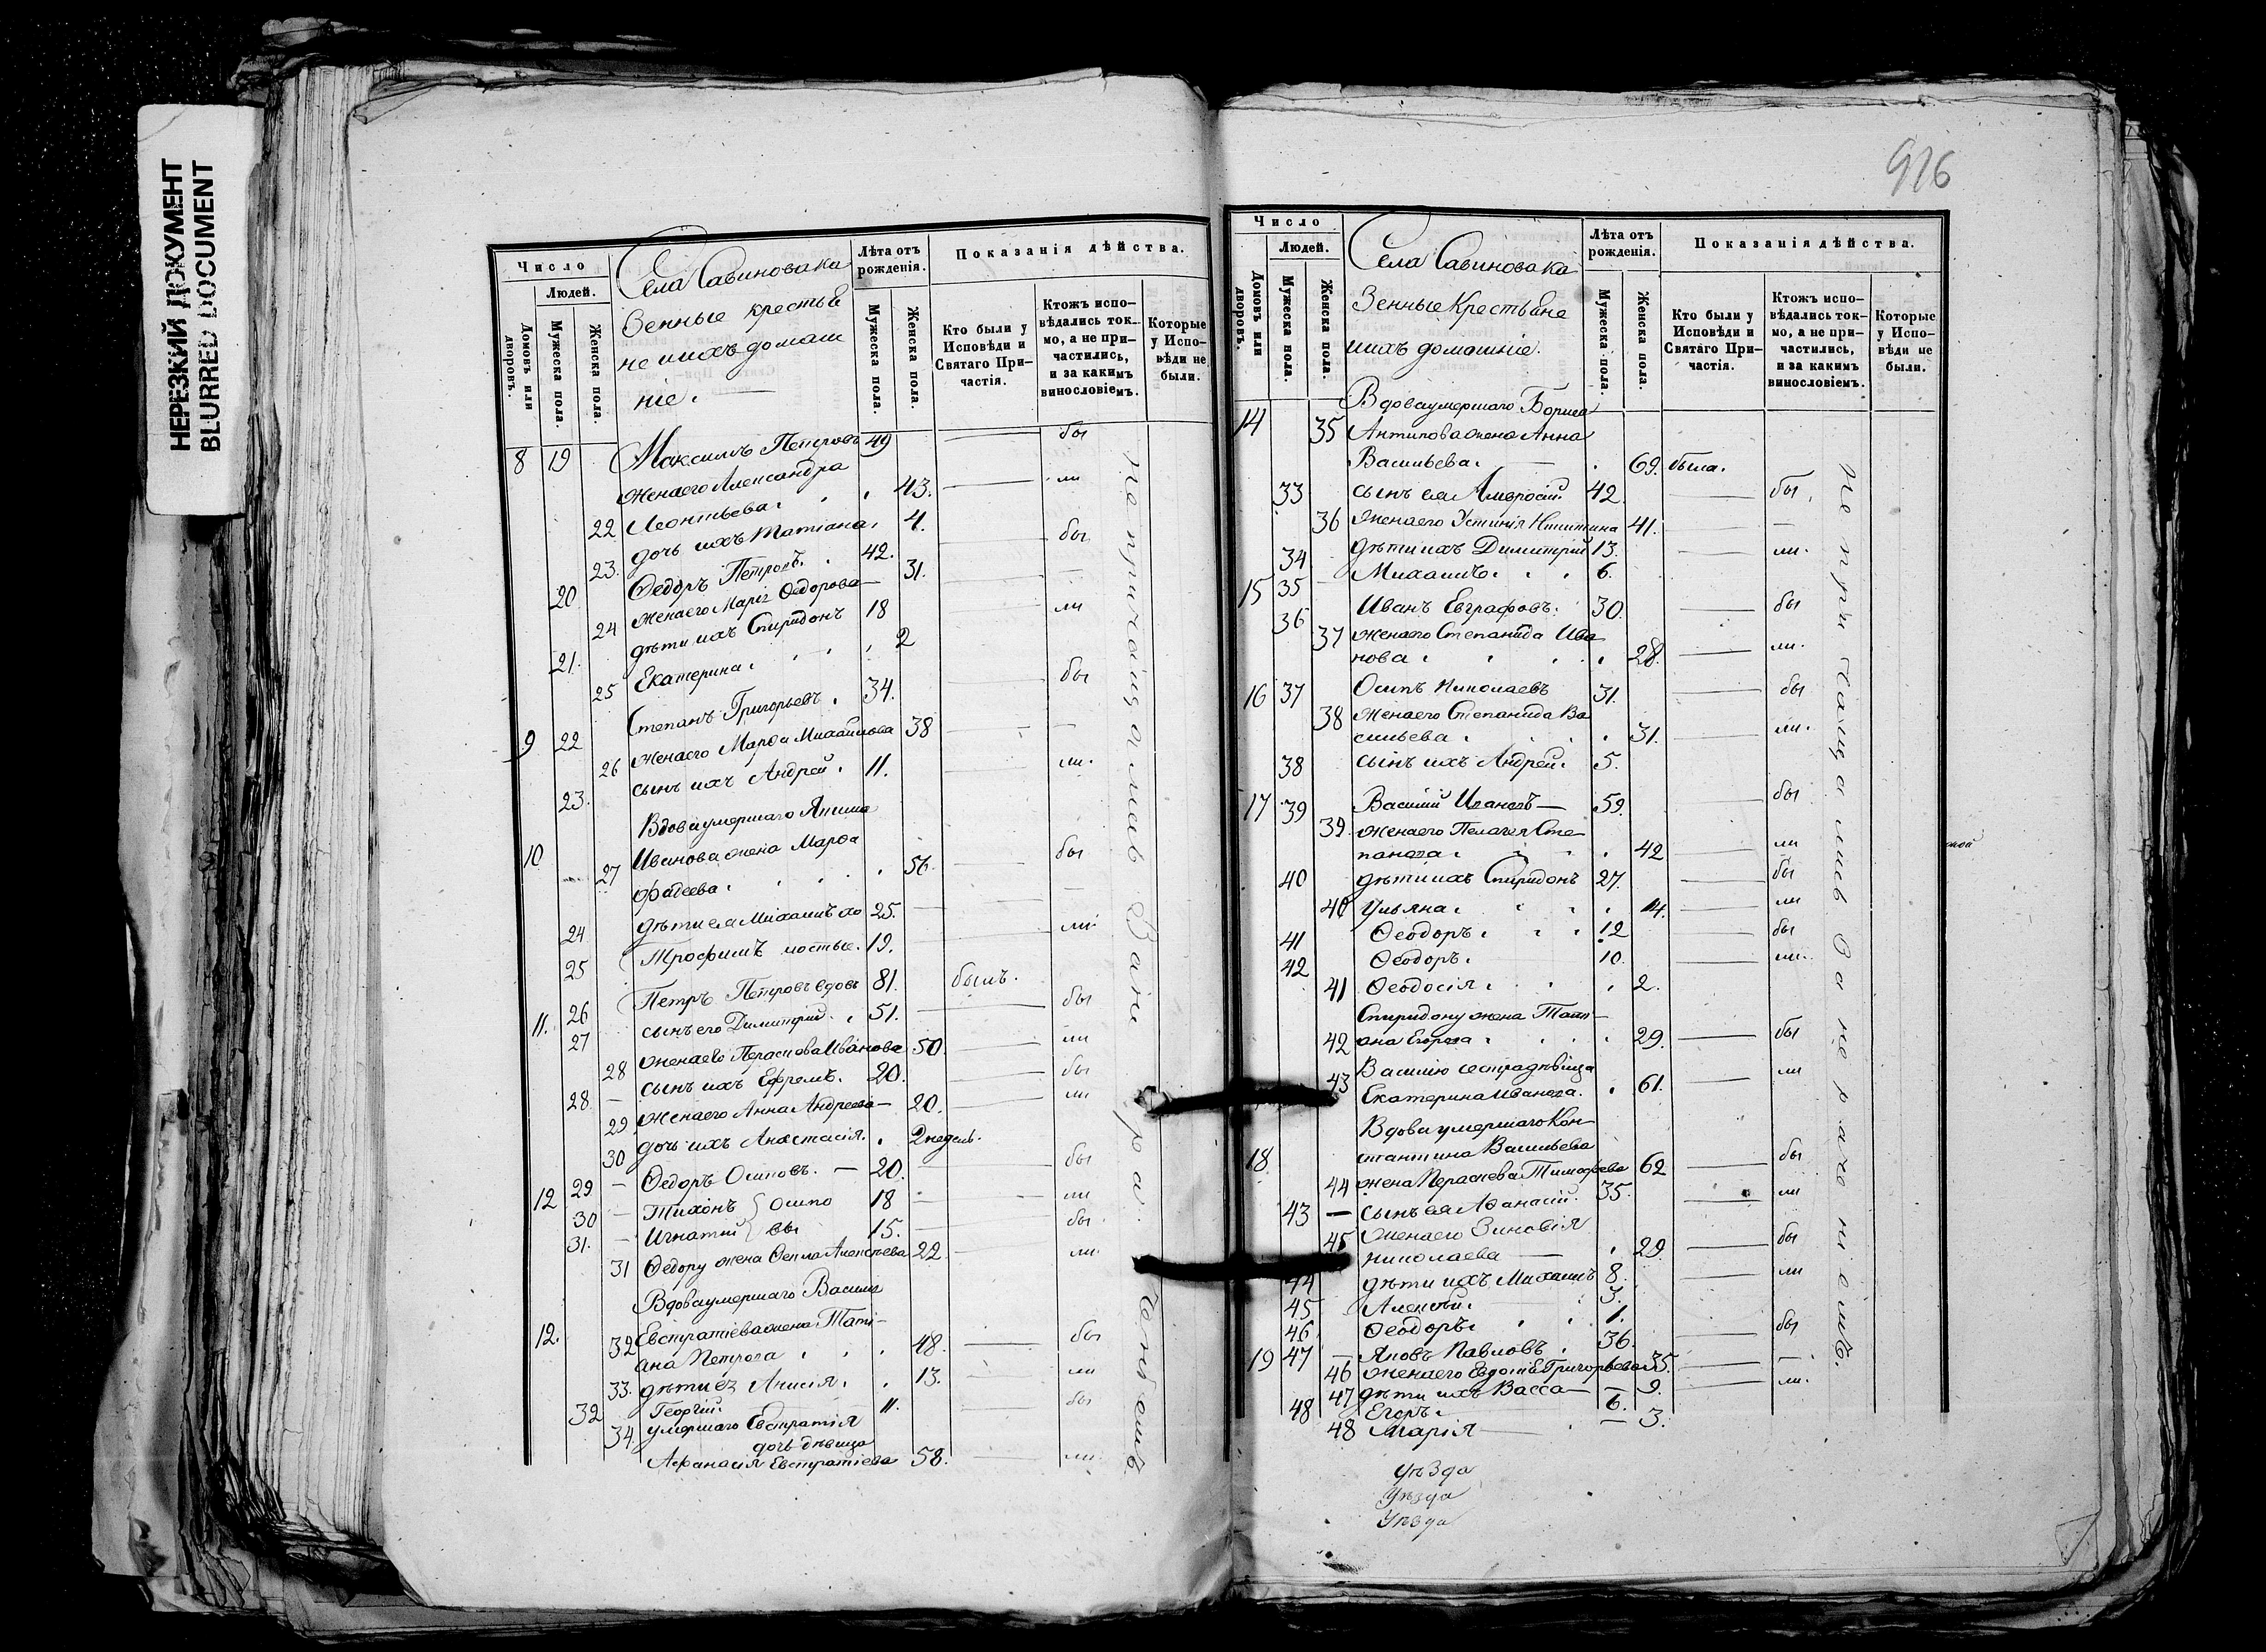 НЕРЕЗКИЙ ДОКУМЕНТ
BLURRED DOCUMENT
Число
Людей.
Домовъ или дворовъ.
Мужеска пола.
Женска пола.
Села Савинова ка
зенные крестья
не и ихъ домаш
ніе.
Лѣта отъ рожденія.
Мужеска пола.
Женска пола.
Показанія дѣйства.
Кто были у Исповѣди и Святаго Причастія.
Ктожъ исповѣдались токмо, а не причастились, и за какимъ винословіемъ.
Которые у Исповѣди не были.
8 19 Максимъ Петровъ 49 бы
жена его Александра
22 Леонтьева. 43. ли
23. дочь ихъ Татіана. 4.
20 Ѳедоръ Петровъ. 42. бы
24 жена его Марія Ѳедорова 31.
21. дѣти ихъ Спиридонъ 18 ли
25 Екатерина. 2
9 22 Степанъ Григорьевъ. 34. бы
26 жена его Марѳа Михайлова 38
23. сынъ ихъ Андрей. 11. ли.
Вдова умершаго
10 Иванова жена Марѳа
27 Фадеева. 56. бы
24 дѣти ея Михаилъ хо 25.
25 Трофимъ лостые. 19. ли
11. 26 Петръ Петровъ вдовъ 81. былъ.
27 сынъ его Димитрій. 51. бы
28 жена его Параскева Иванова 50. ли
28. сынъ ихъ Ефремъ. 20. бы
29 жена его Анна Андреева 20. ли
30 дочь ихъ Анастасія. 2 недель.
12 29 Ѳедоръ Осиповъ. 20. бы
30 Тихонъ Осипо 18 ли
31. Игнатій вы 15. бы
31 Ѳедору жена Ѳекла Алексѣева 22 ли
Вдова умершаго Василія
12. Евстратіева жена Тати-
32 ана Петрова 48. бы
33. дѣти ея Анисія. 13. ли
32 Георгій. 11. бы
34. умершаго Евстратія
дочь дѣвица
Афанасія Евстратіева 58. ли
не причащались за нерачениемъ
916
Число
Людей.
Домовъ или дворовъ.
Мужеска пола.
Женска пола.
Села Савинова ка
зенные Крестьяне
и ихъ домашніе.
Лѣта отъ рожденія.
Мужеска пола.
Женска пола.
Показанія дѣйства.
Кто были у Исповѣди и Святаго Причастія.
Ктожъ исповѣдались токмо, а не причастились, и за какимъ винословіемъ.
Которые у Исповѣди не были.
Вдова умершаго Бориса
14 35 Антипова жена Анна
Васильева. 69. была.
33 сынъ ея Амвросій 42. бы.
36 жена его Устинія Никитина 41.
34 дѣти ихъ Димитрій 13. ли.
35 Михаилъ. 6.
15 36 Иванъ Евграфовъ. 30. бы
37 жена его Степанида Ива
нова. 28. ли.
16 37 Осипъ Николаевъ 31. бы
38 жена его Степанида Ва
сильева. 31. ли.
38 сынъ ихъ Андрей. 5.
17 39 Василій Ивановъ 59. бы
39. жена его Пелагея Сте-
панова. 42 ли
40 дѣти ихъ Спиридонъ 27. бы
40 Ульяна. 14. ли
41 Ѳеодоръ. 12 бы
42 Ѳеодоръ. 10. ли.
41 Ѳеодосія. 2.
Спиридону жена Тати-
42 ана Егорова 29. бы
43 Василію сестра дѣвица
Екатерина Иванова. 61. ли
Вдова умершаго Кон-
18 стантина Васильева
44 жена Параскева Тимофеева 62 бы
43 сынъ ея Аѳанасій. 35. ли
45 жена его Зиновія
Николаева 29. бы
44 дѣти ихъ Михаилъ 8. ли
45 Алексѣй. 3.
46 Ѳеодоръ. 1. бы
19 47 Яковъ Павловъ. 36.
46 жена его Евдокія Григорьева 35.
47 дѣти ихъ Васса 9. ли.
48 Егоръ. 6.
48 Марія 3.
не причащались за нерачениемъ.
уѣзда
Уѣзда
Уѣзда